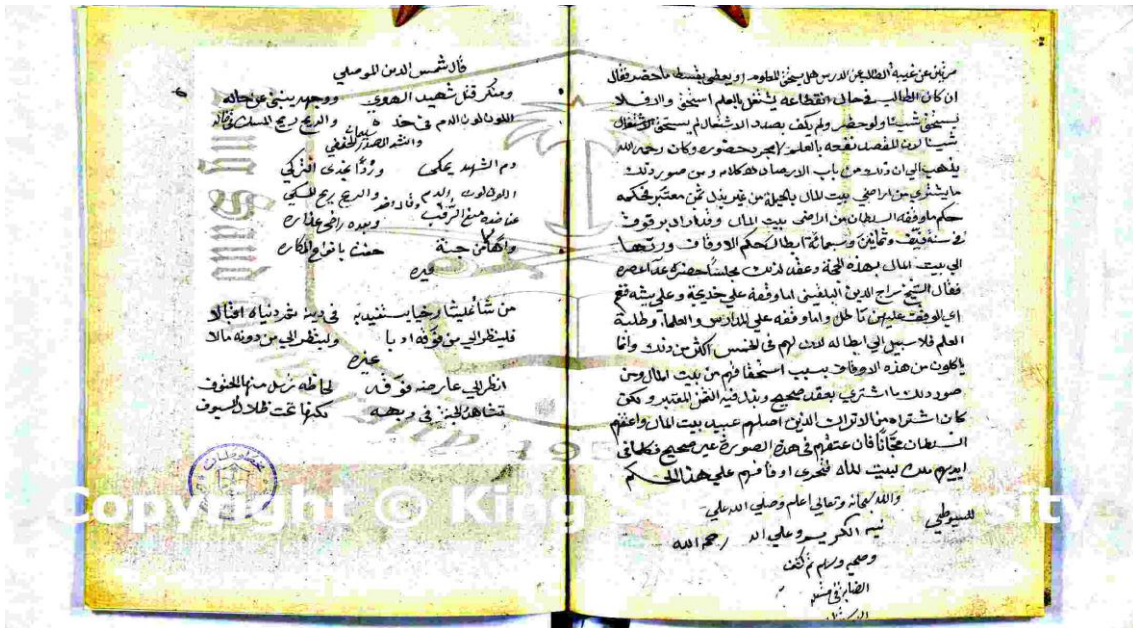 مرتبات عن غيبة الطالب عن الدرس هل يستحق المعلوم او يعطى بقسط ما حضر فقال
ان كان الطالب في حال انقطاعه يشتغل بالعلم استحق والا فلا
يستحق شيئا ولو حضر ولم يكن بصدد الاشتغال لم يستحق الاشتغال
شيئا لان المقصد نفعه بالعلم لا مجرد حضوره وكان رحمه الله
يذهب الي ان ذلك من باب الارصاد هذا كلامه ومن صور ذلك
ما يشتري من اراضي بيت المال بالحيلة من غير بذل ثمن معتبر فحكمه
حكم ما وقفه السلطان من اراضي بيت المال وقد اراد برقوق
في سنة نيف وثمانين وسبعمائة ابطال حكم الاوقاف وردها
الي بيت المال بهذه الحجة وعقد لذلك مجلسا حضره علماء عصره
فقال الشيخ سراج الدين البلقيني اما وقفة علي خديجة وعلي بيشه فنع
اي الوقف عليهن باطل واما وقفه علي المدارس والعلماء وطلبة
العلم فلا سبيل الي ابطاله لان لهم في الخمس اكثر من ذلك وانما
ياكلون من هذه الاوقاف بسبب استحقاقهم من بيت المال ومن
صور ذلك ما اشتري بعقد صحيح وبذل فيه الثمن المعتبر ولكن
كان اشتراه من الاتراك الذين اصلهم عبيد بيت المال واعتقهم
السلطان مجانا فان عتقهم في هذه الصورة غير صحيح فكلما في
ايديهم ملك لبيت المال فتجري اوقافهم علي هذا الحكم
والله سبحانه وتعالي اعلم وصلي الله علي
للسيوطي
نبيه الكريم وعلي اله رحمه الله
وصحبه وسلم تم
قال شمس الدين الموصلي
ومنكر قتل شهيد الهوي ووجهه ينبئ عن حاله
اللون لون الدم في خده والريح ريح المسك في خاله
دم الشهيد يحكي وردا بخدي
اللون لون الدم والريح ريح المسك
منع الرقيب
جنة حفت بانواع المكاره
غيره
من شا عيشا رخيا يستفيد به في دينه ثم دنياه اقبالا
فلينظرن الي من فوقه ادبا ولينظرن الي من دونه مالا
غيره
انظر الي عارضه فوقه لحاظه ترسل منها الحتوف
تشاهد الجنة في وجهه لكنها تحت ظلال السيوف
Copyright © King University